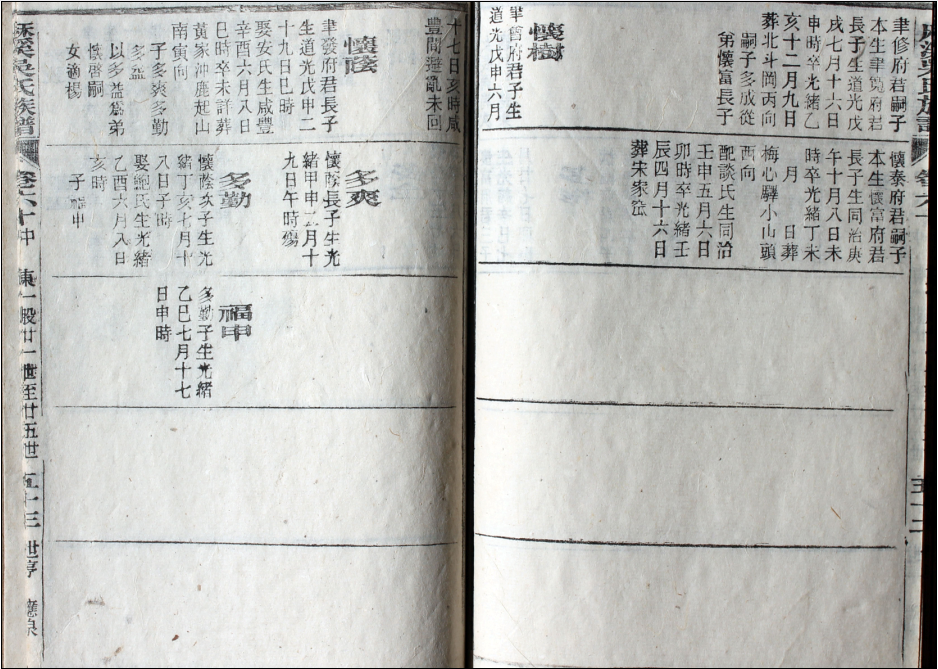 聿修府君嗣子
本生聿寬府君
長子生道光戊
戌七月十六日
申時卒光緒乙
亥十二月九日
葬北斗岡丙向
嗣子多成從
弟懷富長子
懷樹
聿曾府君子生
道光戊申六月
懷泰府君嗣子
本生懷富府君
長子生同治庚
午十月八日未
時卒光緒丁未
月 日葬
梅心驛小山頭
西向
配談氏生同治
壬申五月六日
卯時卒光緒壬
辰四月十六日
葬宋家
五十二
十七日亥時咸
豐間避亂未回
懷蔭
聿發府君長子
生道光戊申二
十九日巳時
娶安氏生咸豐
辛酉六月八日
巳時卒未詳葬
黃家沖鹿起山
南寅向
子多爽多勤
多益
以多益爲弟
懷啓嗣
女適楊
多爽
懷蔭長子生光
緒甲申二月十
九日午時殤
多勤
懷蔭次子生光
緒丁亥七月十
八日子時
娶鮑氏生光緒
乙酉六月八日
亥時
子福申
福申
多勤子生光緒
乙巳七月十七
日申時
吳氏族譜
卷六十中
東一股廿一世至廿五世
五十三
世亨